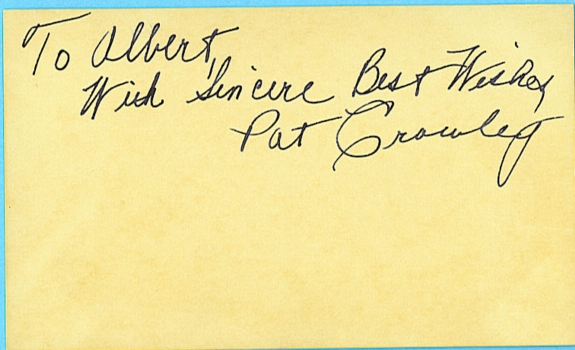 To Albert,
With Sincere Best Wishes
Pat Crowley